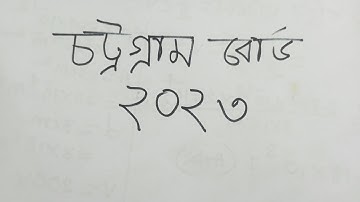 চট্রগ্রাম বোর্ড
২০২৩